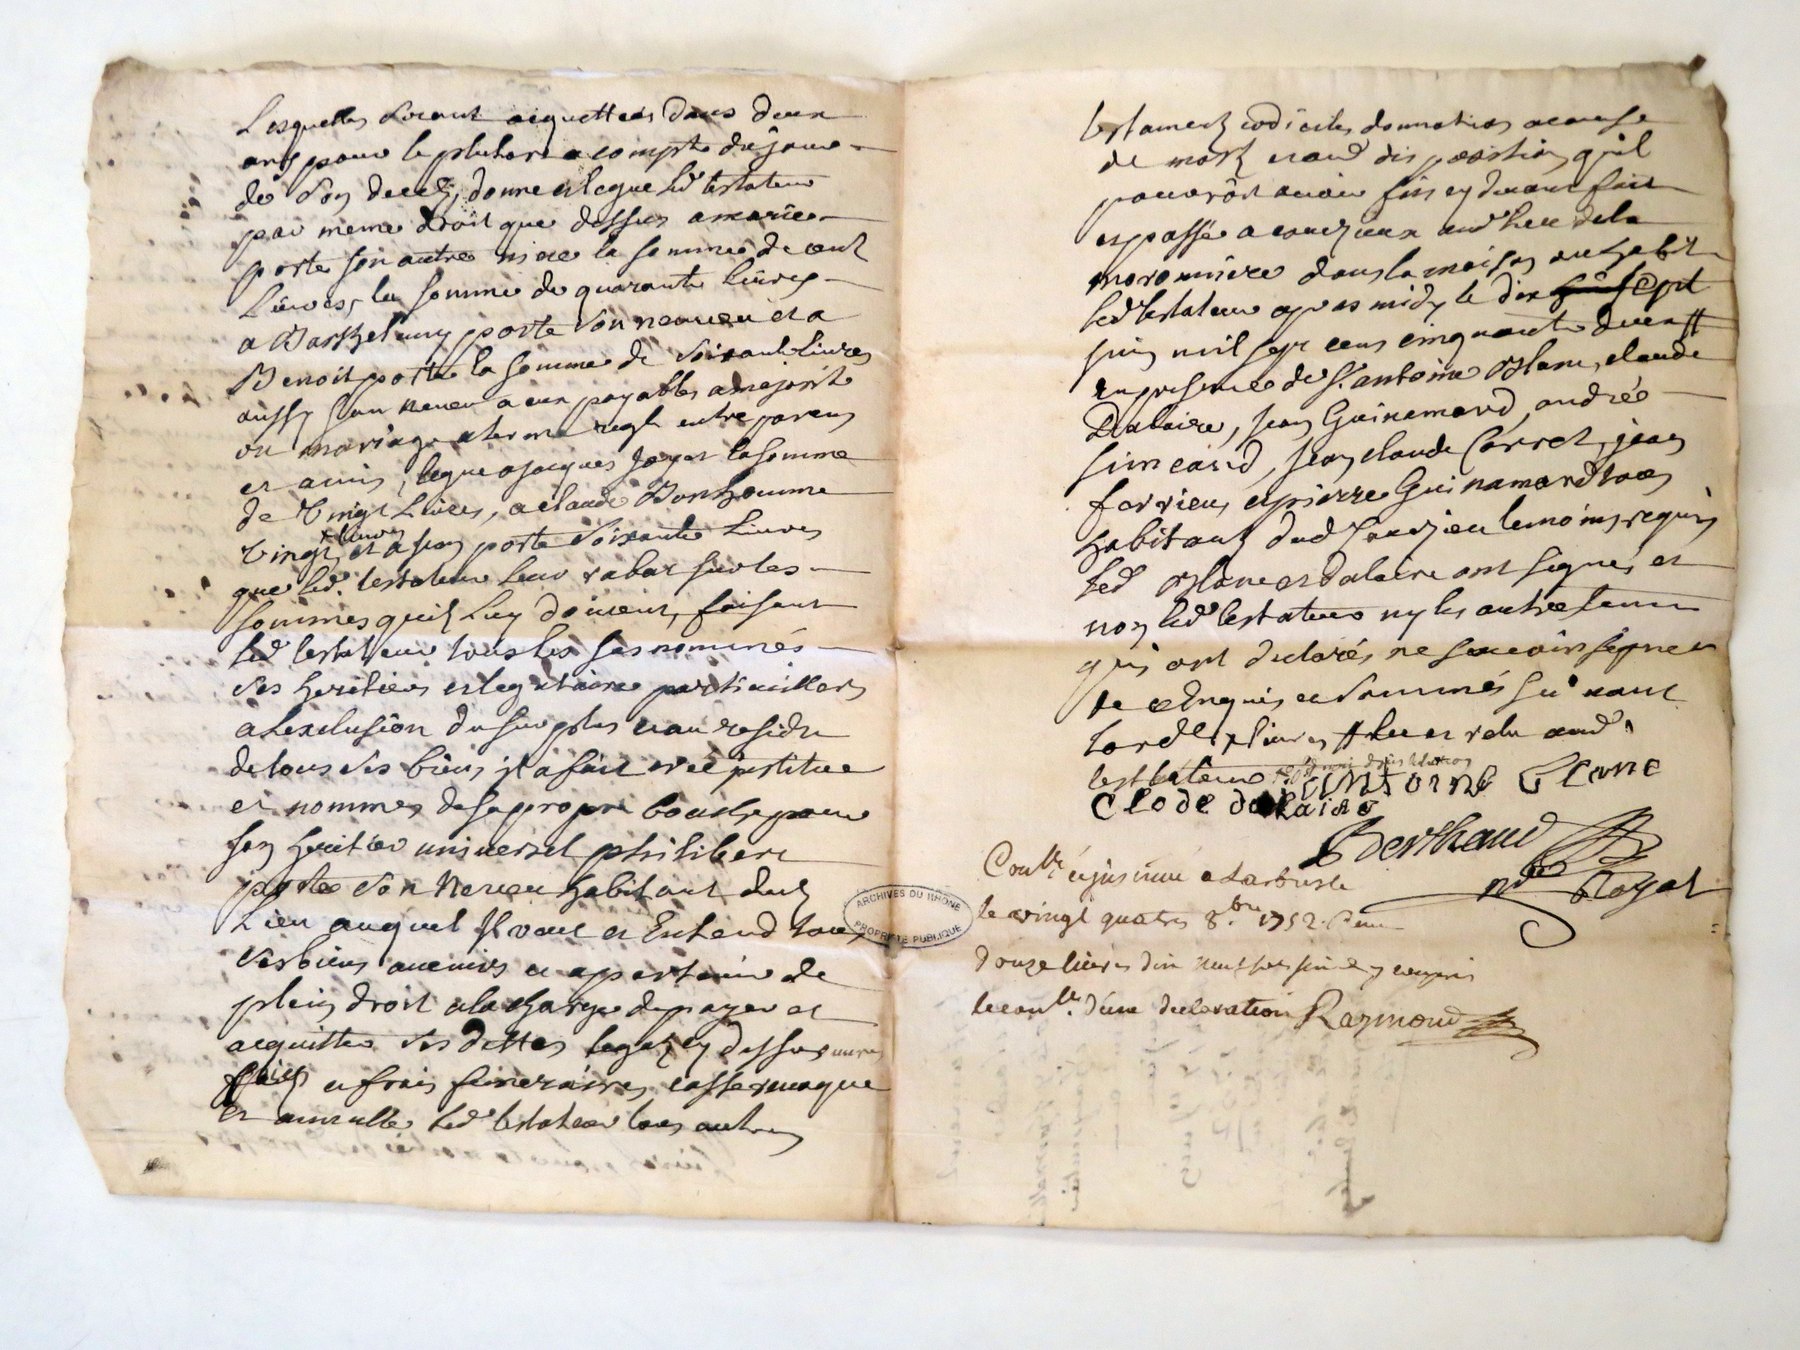 Lesquelles seront aiquittees dans deux
ans pour le plustard a compte du jour
de son deced, donne et legue led testateur
par meme droit que dessus a marie
porte son autre niece la somme de cent
Livres, la somme de quarante livres
a Barthelemy porte son neveu et a
Benoit porte la somme de soixante livres
aussy son neveu a eux payables a majorité
ou mariage a terme reglé entre parens
et amis, legue a Jacques Joyet la somme
de vingt Livres, a claude Bonhomme
Livres
vingt et a Jean porte soixante Livres
que led. testateur leur rabat sur les
sommes quils luy doivent, faisant
led testateur tous les sus nommés
ses heritiers et legataire particulliers
a Lexclusion du surplus et au residu
de tous ses biens, il a fait creé institué
et nommé de sa propre bouche pour
son heritier universel philibert
porte son Neveu habitant dud
Lieu auquel il veut et Entend tous
ses biens avenir et apartenir de
plein droit a la charge de payer et
acquitter ses dettes legats cy dessus
faits et frais funeraires, casse revoque
et annulle led testateur tous autres
testament codiciles donnations a cause
de mort et aud disposition qu'il
pouroit avoir fais cy devant fait
et passé a couzieux aud lieu de la
maronniere dans la maison ou habite
led testateur apres midy le dix sept
juin mil sept cens cinquante deux
en presence de S. antoine Blanc, claude
Dalaire, Jean Guinamard, andreé
simeand, Jean claude Carret, jean
ferrieu et pierre Guinamard tous
habitant dud Couzieu temoins requis
led Blanc et dalaire ont signés et
non led testateur ny les autre temoin
qui ont declarés ne sçavoir signer
de ce Enquis et sommés suivant
Lord.ce Livres # leu et relu aud
testateur antoine blanc
clode dalaire
Berthaud
n.re Royal
Con.lé et insinué a Larbresle
le vingt quatre 8.bre 1752. Reçu
douze livres dix neuf sols six d. y compris
le con.le d'une declaration Raymond
ARCHIVES DU RHÔNE
PROPRIÉTÉ PUBLIQUE